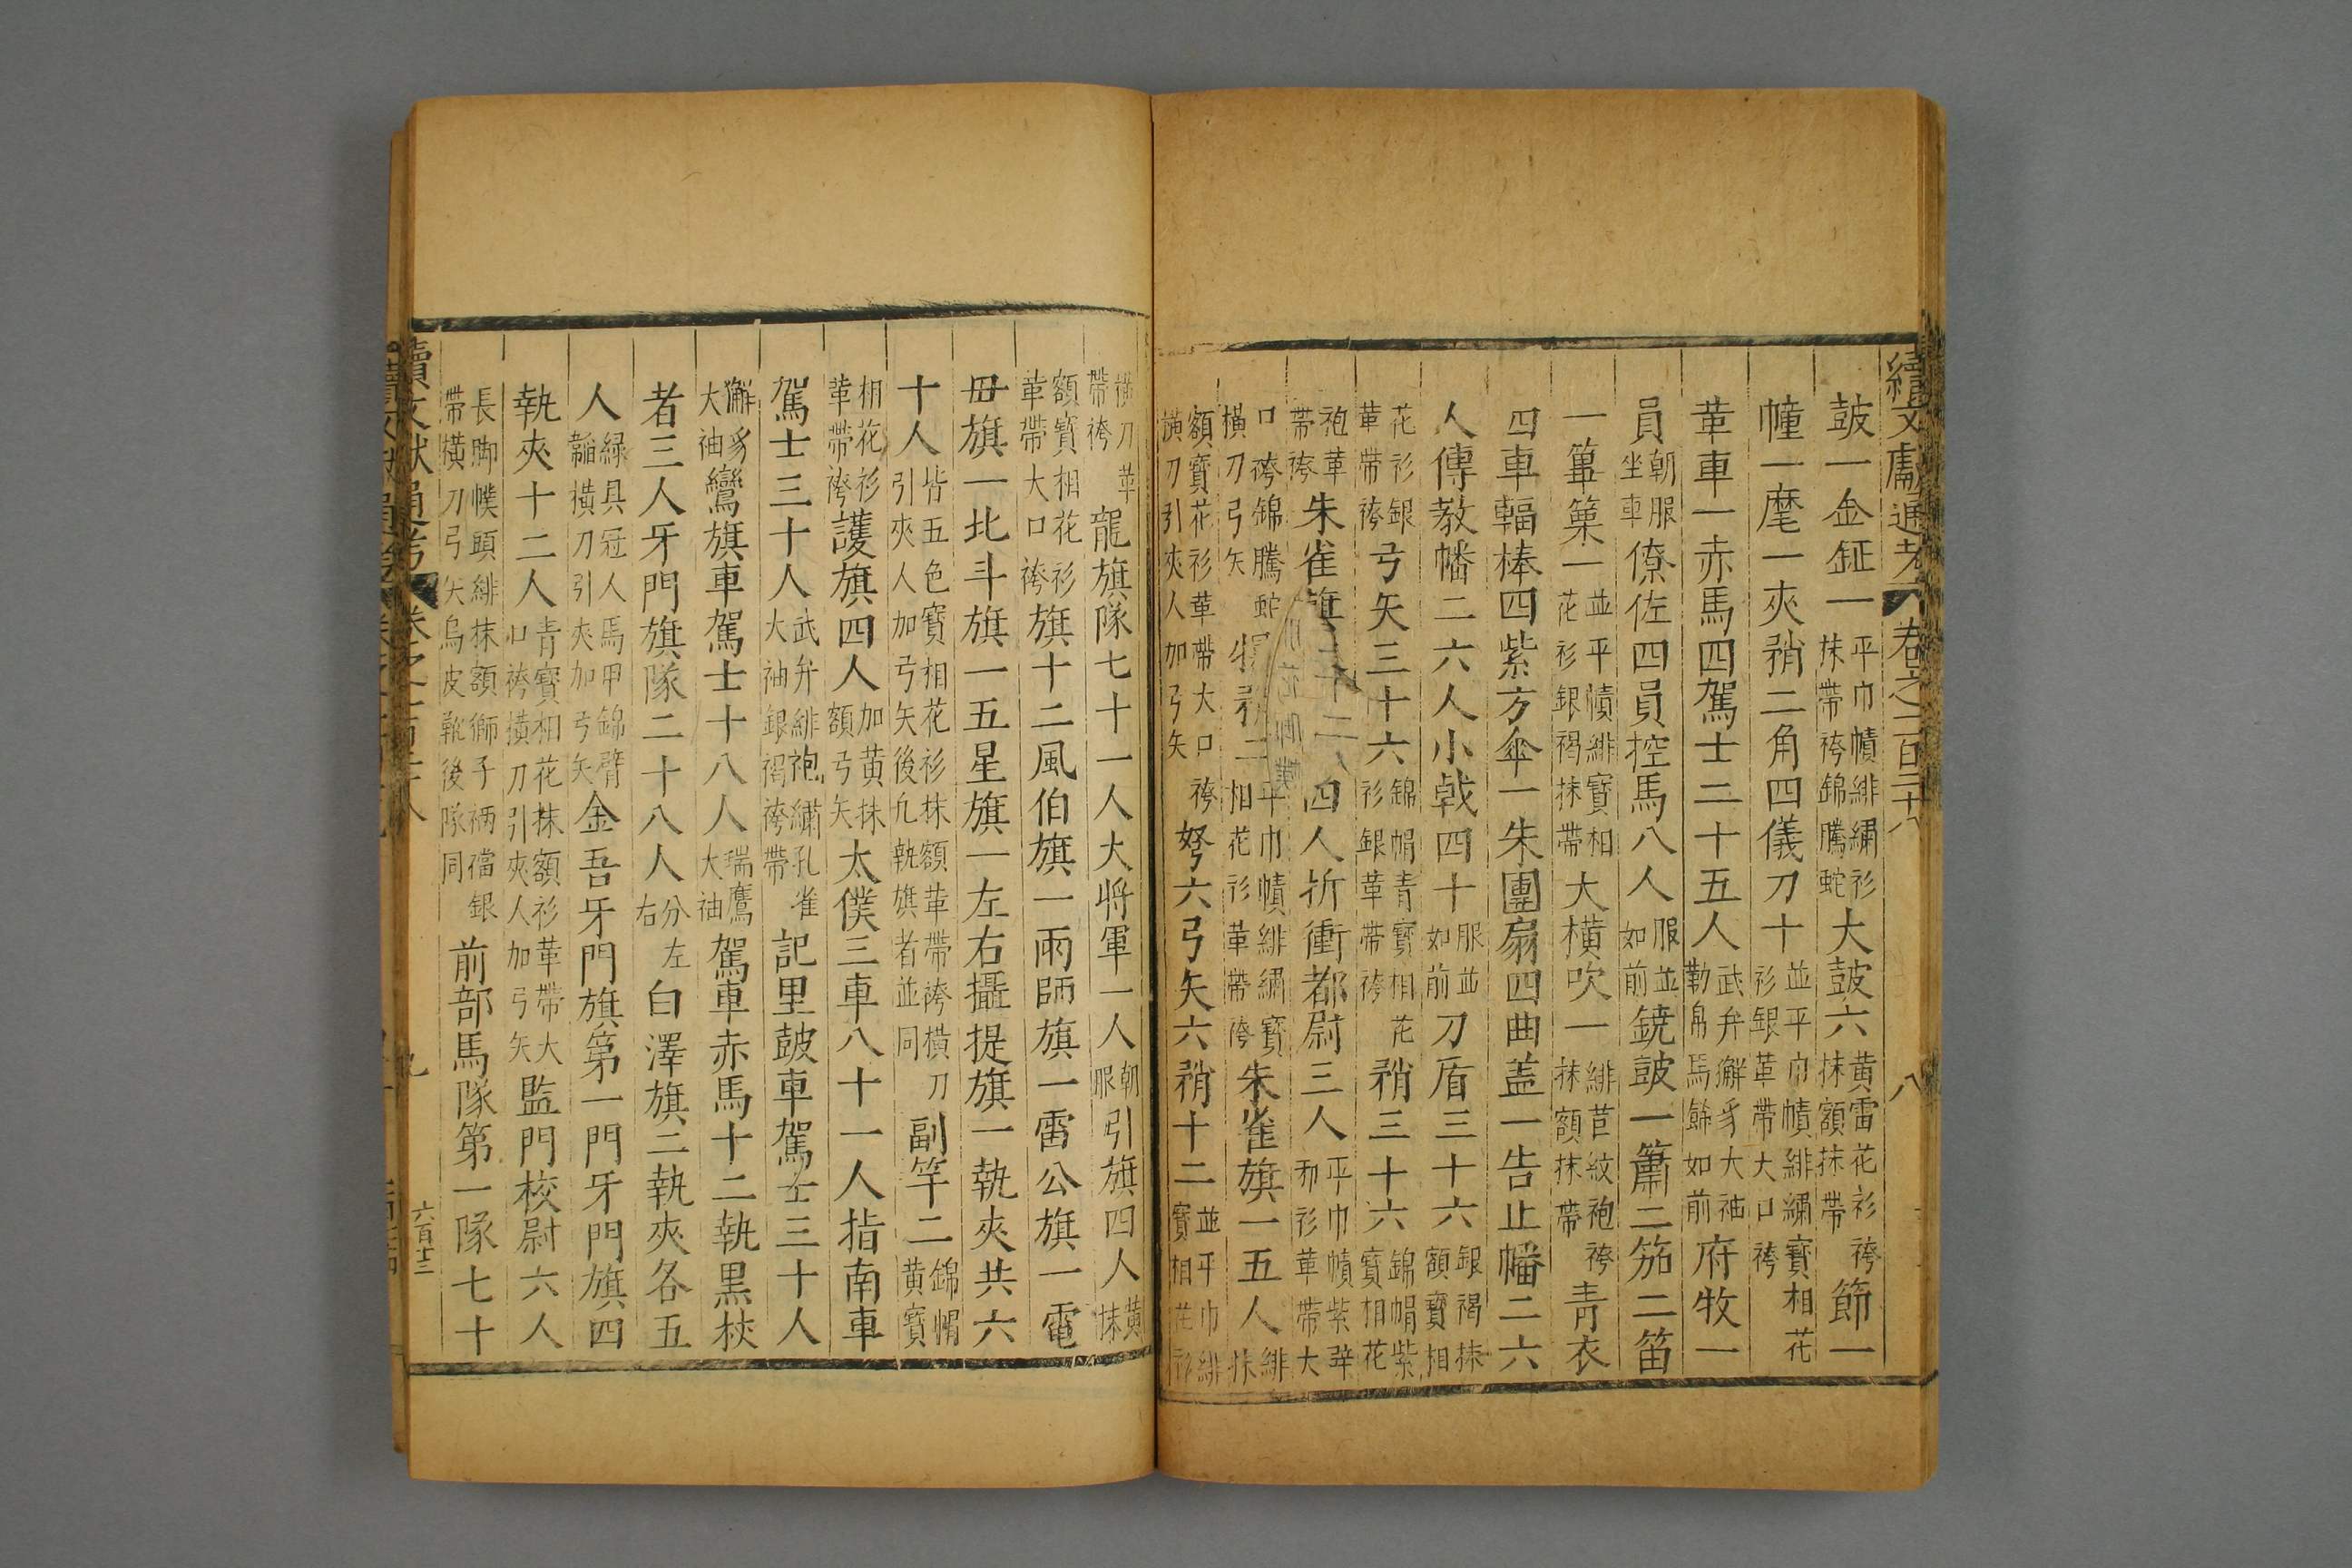 續文獻通考 卷之一百二十八 八
鼓一金鉦一平巾幘緋繡衫抹帶袴錦騰蛇大鼓六黃雷花衫袴抹額抹帶節一
幢一麾一夾矟二角四儀刀十並平巾幘緋繡寶相花衫銀革帶大口袴
革車一赤馬四駕士二十五人武弁獬豸大袖勒帛馬餙如前府牧一
員朝服坐車僚佐四員控馬八人服並如前鐃鼓一簫二笳二笛
一篳篥一並平幘緋寶相花衫銀褐抹帶大橫吹一緋苣紋袍袴抹額抹帶青衣
四車輻棒四紫方傘一朱團扇四曲盖一告止幡二六
人傳教幡二六人小戟四十服並如前刀盾三十六銀褐抹額寶相
花衫銀革帶袴弓矢三十六錦帽青寶相花衫銀革帶袴矟三十六錦帽紫寶相花
袍革帶袴朱雀旗四人折衝都尉三人平巾幘紫辟邪衫革帶大
口袴錦騰蛇橫刀弓矢二平巾幘緋繡寶相花衫革帶袴朱雀旗一五人緋抹
額寶花衫革帶大口袴橫刀引夾人加弓矢弩六弓矢六矟十二並平巾幘緋寶相花衫
橫刀革帶袴龍旗隊七十一人大將軍一人朝服引旗四人黃抹
額寶相花衫革帶大口袴旗十二風伯旗一雨師旗一雷公旗一電
毋旗一北斗旗一五星旗一左右攝提旗一執夾共六
十人皆五色寶相花衫抹額革帶袴橫刀引夾人加弓矢後凡執旗者並同副竿二錦帽黃寶
相花衫革帶袴護旗四人加黃抹額弓矢太僕三車八十一人指南車
駕士三十人武弁緋袍繡孔雀大袖銀褐袴帶記里鼓車駕士三十人
獬豸大袖鸞旗車駕士十八人瑞鷹大袖駕車赤馬十二執黑杖
者三人牙門旗隊二十八人分左右白澤旗二執夾各五
人緑具冠人馬甲錦臂韝橫刀引夾加弓矢金吾牙門旗第一門牙門旗四
執夾十二人青寶相花抹額衫革帶大口袴橫刀引夾人加弓矢監門校尉六人
長脚幞頭緋抹額獅子裲襠銀帶橫刀弓矢烏皮靴後隊同前部馬隊第一隊七十
續文獻通考 九 六百十三